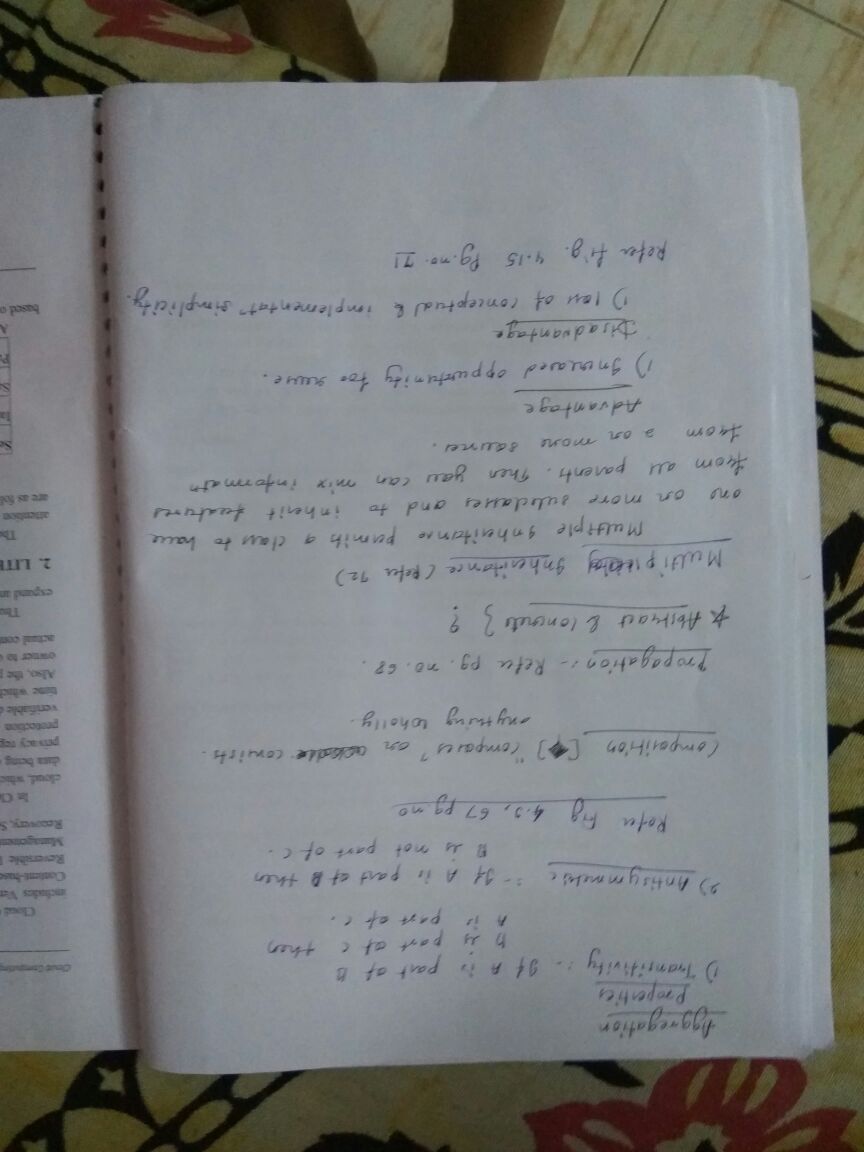 Aggregation
Properties
1) Transitivity :- If A is part of B
B is part of C then
A is part of C.
2) Antisymmetric :- If A is part of B then
B is not part of C.
Refer Fig 4.9, 67 pg.no
Composition [◆] "composes" or consists.
anything wholly.
Propagation :- Refer pg. no. 68.
* Abstract & concrete } ?
Multiple Inheritance (Refer 72)
Multiple Inheritance permits a class to have
one or more subclasses and to inherit features
from all parents. Then you can mix informatn
from 2 or more sources.
Advantage
1) Increased oppurtunity for reuse.
Disadvantage
1) loss of conceptual & implementatn simplicity.
Refer fig. 4.15 Pg.no. 71
Cloud Computing
Cloud
includes Ver
Content-base
Reversible
Management
Recovery, S
In Cl
cloud, which
data being
privacy reg
protection
verifiable
time which
Also, the p
owner to
actual com
Thu
expand an
2. LITE
The
attention
are as foll
Se
based o